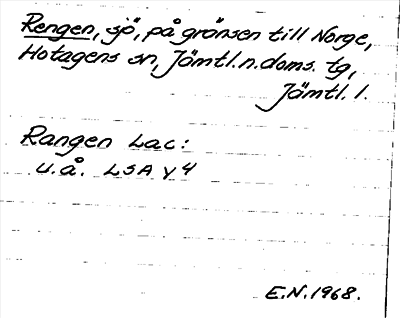 Rengen, sjö, på gränsen till Norge,
Hotagens sn, Jämtl.n.doms. tg,
Jämtl. l.
Rangen Lac:
u.å. LSA y 4
E.N.1968.